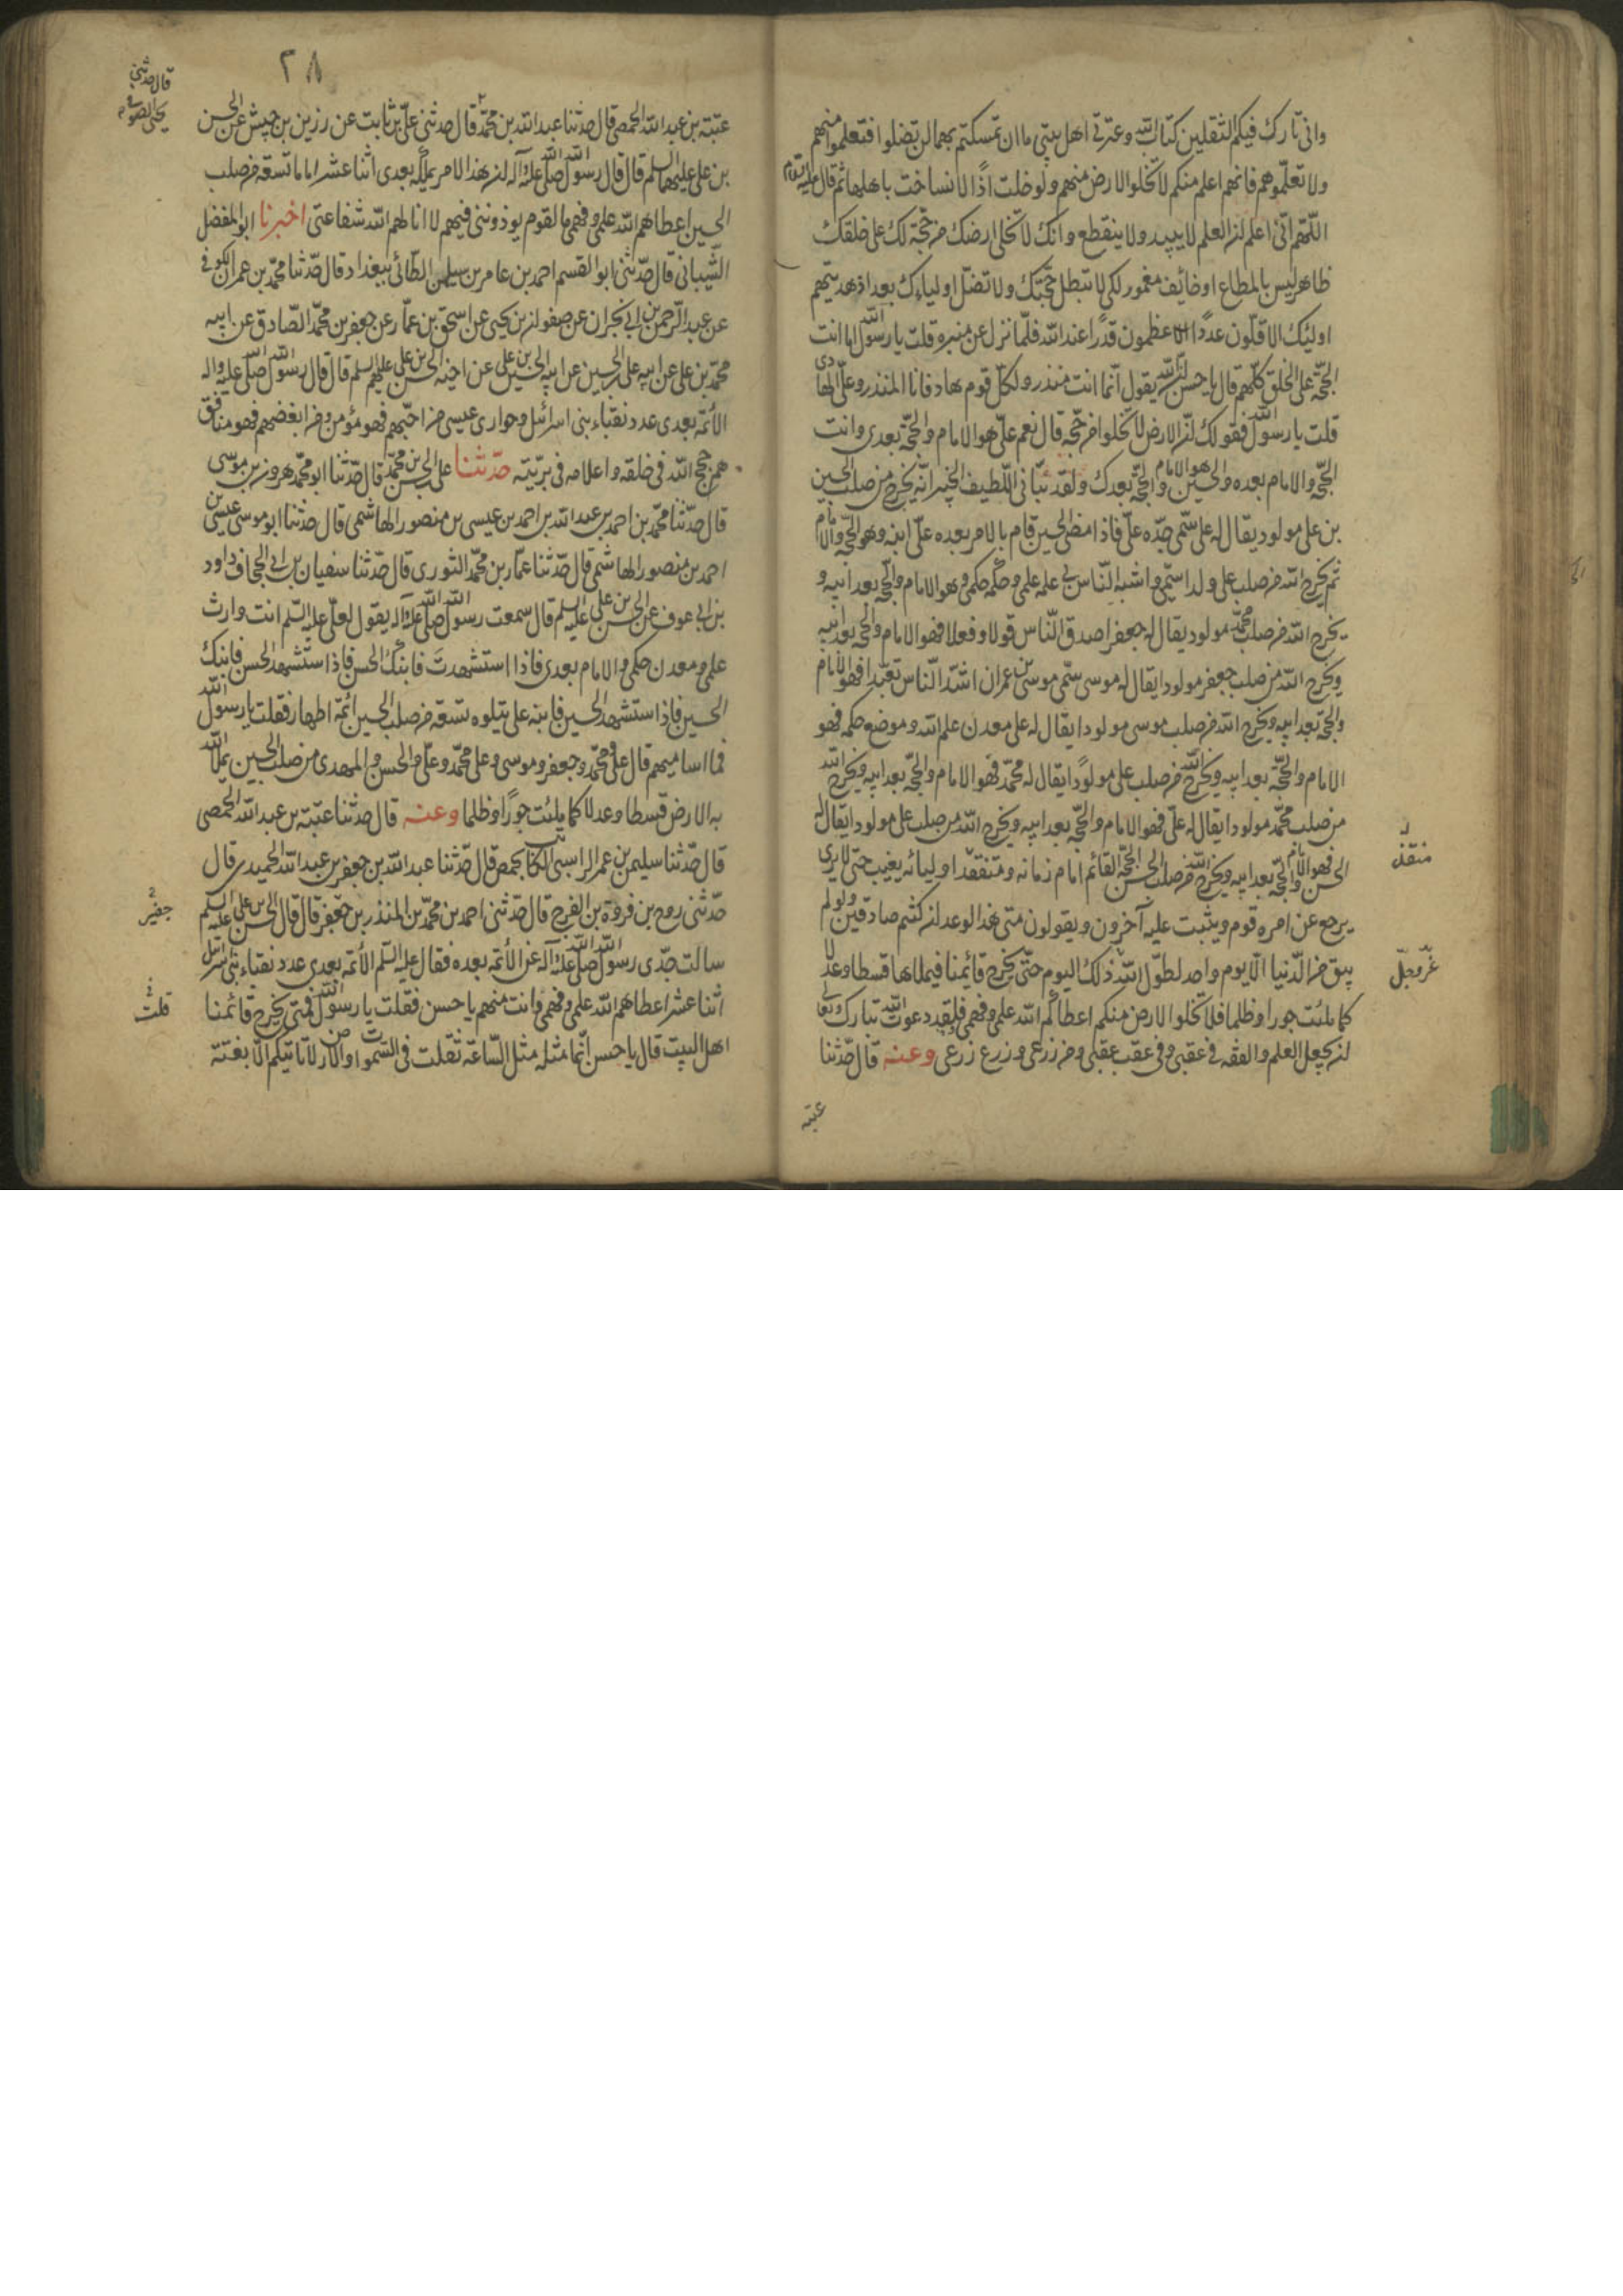 واني تارك فيكم الثقلين كتاب الله وعترتي اهل بيتي ما ان تمسكتم بهما لن تضلوا فتعلموا منهم
ولا تعلّموهم فانهم اعلم منكم لا تخلوا الارض منهم ولو خلت اذًا لانساخت باهلها ثم قال عليه السلام
اللّهمّ انّي اعلم انّ العلم لا يبيد ولا ينقطع وانّك لا تخلي ارضك من حجّة لك على خلقك
ظاهر ليس بالمطاع او خائف مغمور لكيلا تبطل حجّتك ولا تضلّ اولياءك بعد اذ هديتهم
اولئك الاقلّون عددًا الاعظمون قدرًا عند الله فلمّا نزل عن منبره قلت يا رسول الله اما انت
الحجّة على الخلق كلّهم قال يا حسن انّ الله يقول انّما انت منذر ولكلّ قوم هاد فانا المنذر وعليّ الهادي
قلت يا رسول الله فقولك انّ الارض لا تخلوا من حجّة قال نعم عليّ هو الامام والحجّة بعدي وانت
الحجّة والامام بعده والحسين هو الامام والحجّة بعدك ولقد نبّاني اللّطيف الخبير انّه يخرج من صلب الحسين
بن علي مولود يقال له علي سمّي جدّه عليّ فاذا مضى الحسين قام بالامر بعده عليّ ابنه وهو الحجّة والامام
ثم يخرج الله من صلب علي ولدا سمّي واشبه النّاس بي علمه علمي وحكمه حكمي وهو الامام والحجّة بعد ابيه و
يخرج الله من صلب محمّد مولود يقال له جعفر اصدق النّاس قولا وفعلا فهو الامام والحجّة بعد ابيه
ويخرج الله من صلب جعفر مولودا يقال له موسى سمّي موسى بن عمران اشدّ النّاس تعبّدا فهو الامام
والحجّة بعد ابيه ويخرج الله من صلب موسى مولودا يقال له علي معدن علم الله وموضع حكمه فهو
الامام والحجّة بعد ابيه ويخرج الله من صلب علي مولودًا يقال له محمّد فهو الامام والحجّة بعد ابيه ويخرج الله
من صلب محمّد مولودا يقال له عليّ فهو الامام والحجّة بعد ابيه ويخرج الله من صلب علي مولودا يقال له
الحسن فهو الامام والحجّة بعد ابيه ويخرج الله من صلب الحسن الحجّة القائم امام زمانه ومتفقد اوليائه يغيب حتّى لا يرى
منقذ
يرجع عن امره قوم ويثبت عليه آخرون ويقولون متى هذا الوعد ان كنتم صادقين ولو لم
يبق من الدّنيا الّا يوم واحد لطوّل الله ذلك اليوم حتّى يخرج قائمنا فيملاها قسطا وعدلا
عزّوجلّ
كما ملئت جورا وظلما فلا تخلوا الارض منكم اعطاكم الله علمي وفهمي فلقد دعوت الله تبارك وتعالى
ان يجعل العلم والفقه في عقبي وفي عقب عقبي ومن زرعي وزرع زرعي وعنه قال حدّثنا
عتبة
٢٨
قال حدثني
يحيى الصوفي
عتبة بن عبد الله الحمصي قال حدّثنا عبد الله بن محمّد قال حدثني عليّ بن ثابت عن رزين بن حبيش عن الحسن
بن علي عليهما السلم قال قال رسول الله صلى الله عليه وآله ان هذا الامر يملكه بعدي اثنا عشر اماما تسعة من صلب
الحسين اعطاهم الله علمي وفهمي ما لقوم يوذونني فيهم لا انا لهم الله شفاعتي اخبرنا ابو المفضل
الشيباني قال حدّثني ابو القسم احمد بن عامر بن سليمن الطّائي ببغداد قال حدّثنا محمّد بن عمران الكوفي
عن عبد الرّحمن بن ابي نجران عن صفوان بن يحيى عن اسحق بن عمّار عن جعفر بن محمّد الصّادق عن ابيه
محمّد بن علي عن ابيه علي بن الحسين عن ابيه الحسين بن علي عن اخيه الحسن بن علي عليهم السلم قال قال رسول الله صلى الله عليه واله
الائمّة بعدي عدد نقباء بني اسرائيل وحواري عيسى من احبّهم فهو مؤمن ومن ابغضهم فهو منافق
هم حجج الله في خلقه واعلامه في بريّته حدّثنا علي بن الحسن بن محمّد قال حدّثنا ابو محمّد هرون بن موسى
قال حدّثنا محمّد بن احمد بن عبد الله بن احمد بن عيسى بن منصور الهاشمي قال حدّثنا ابو موسى عيسى بن
احمد بن منصور الهاشمي قال حدّثنا عمّار بن محمّد الثوري قال حدّثنا سفيان بن ابي الجحاف داود
بن ابي عوف عن الحسن بن علي عليه السلم قال سمعت رسول الله صلى الله عليه وآله يقول لعليّ عليه السلم انت وارث
علمي ومعدن حكمي والامام بعدي فاذا استشهدت فابنك الحسن فاذا استشهد الحسن فابنك
الحسين فاذا استشهد الحسين فابنه علي يتلوه تسعة من صلب الحسين ائمّة اطهار فقلت يا رسول الله
فما اساميهم قال علي ومحمّد وجعفر وموسى وعلي ومحمّد وعليّ والحسن والمهدي من صلب الحسين يملا الله
به الارض قسطا وعدلا كما ملئت جورًا وظلما وعنه قال حدّثنا عتبة بن عبد الله الحمصي
قال حدّثنا سليمن بن عمر الراسبي الكاتب بحمص قال حدّثنا عبد الله بن جعفر بن عبد الله الحميدي قال
حدّثني روح بن فروة بن الفرج قال حدّثني احمد بن محمّد بن المنذر بن جعفر قال قال الحسن بن علي عليه السلم
جعفر
سالت جدّي رسول الله صلى الله عليه وآله عن الائمّة بعده فقال عليه السلم الائمّة بعدي عدد نقباء بني اسرائيل
اثنا عشر اعطاهم الله علمي وفهمي وانت منهم يا حسن فقلت يا رسول الله فمتى يخرج قائمنا
قلت
اهل البيت قال يا حسن انّما مثله مثل السّاعة ثقلت في السّموات والارض لا تاتيكم الّا بغتة